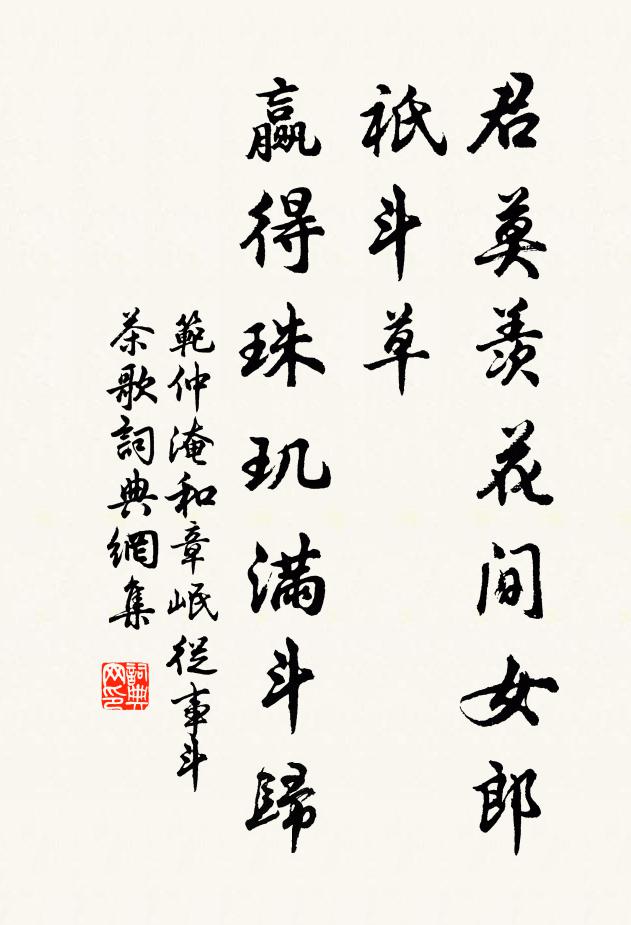 君莫羨花间女郎
祇斗草
赢得珠玑滿斗歸
範仲淹和章岷従事斗
茶歌詞典網集
詞典
网印